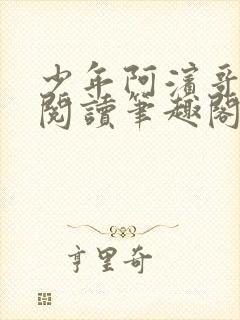 少年阿濱哥
閱讀筆趣閣
亨里奇